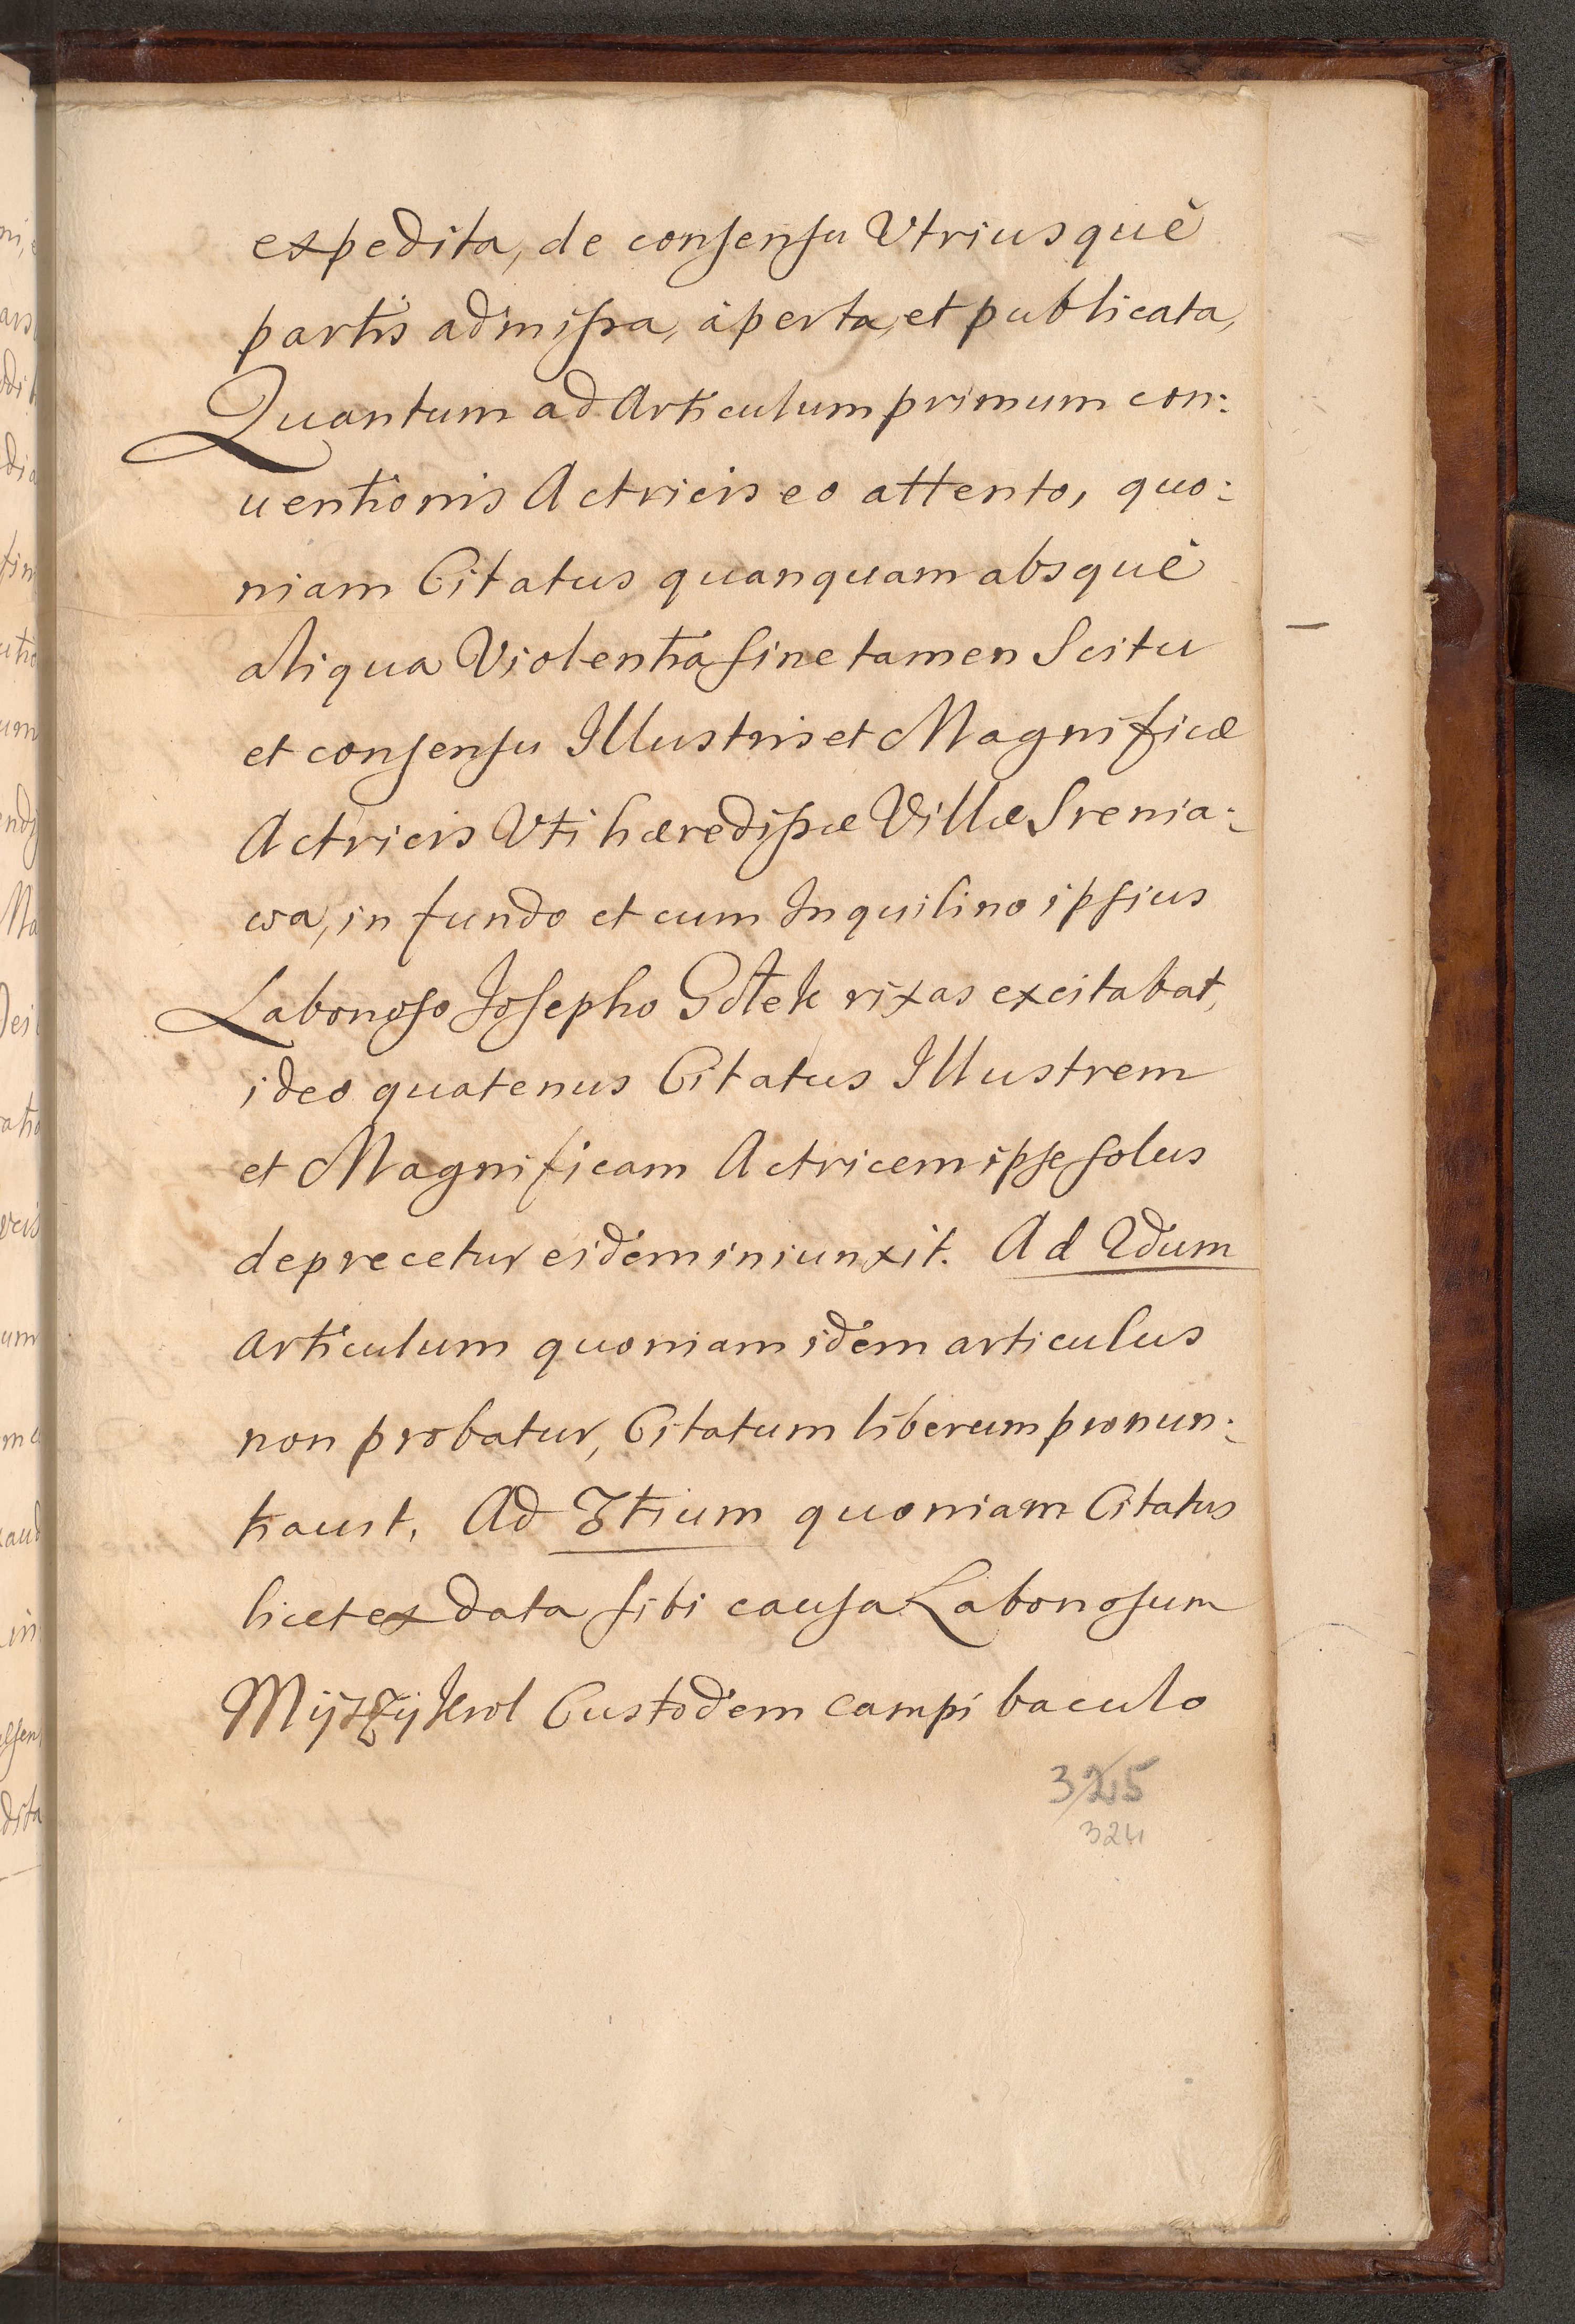 expedita, de consensu Utriusquè
partis admissa, àperta, et publicata,
Quantum ad Articulum primum con:
uentionis Actricis eo attento, quo:
niam Citatus quanquam absquè
aliqua Violentia sine tamen Scitu
et consensu Illustris et Magnificæ
Actricis Uti hæredissæ Villæ Srenia:
wa, in fundo et cum Inquilino ipsius
Laborioso Josepho rixas excitabat,
ideo quatenus Citatus Illustrem
et Magnificam Actricem ipse solus
deprecetur eidem iniunxit. Ad 2dum
articulum quoniam idem articulus
non probatur, Citatum liberum pronun:
tiauit, Ad 3tium quoniam Citatus
licet ex data sibi causa Laboriosum
Custodem campi baculo
325
324